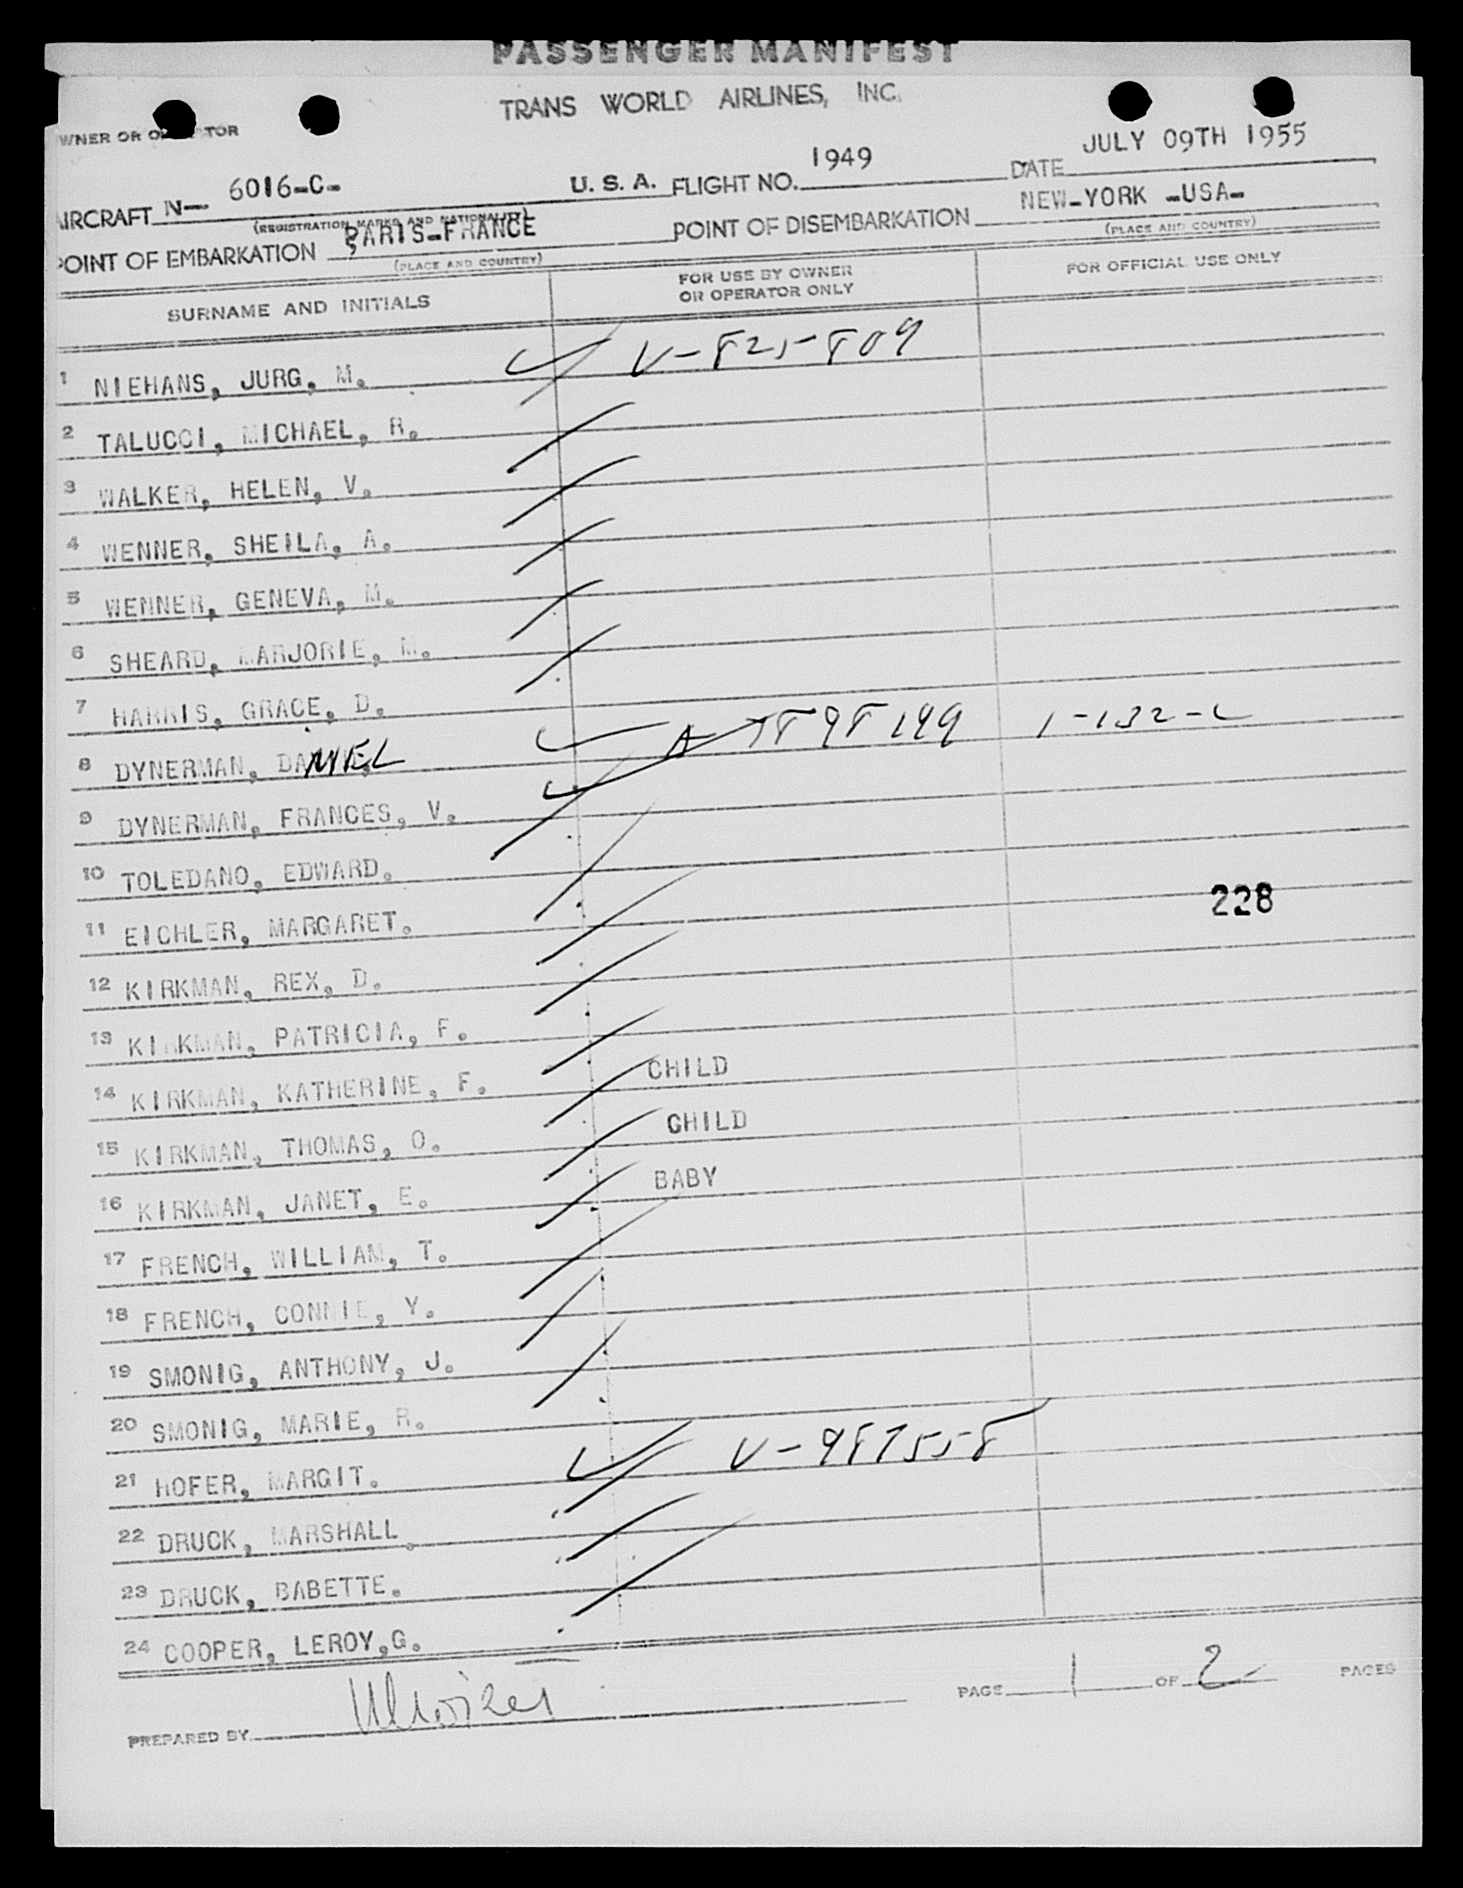 PASSENGER MANIFEST
TRANS WORLD AIRLINES, INC.
OWNER OR OPERATOR
AIRCRAFT N— 6016-C- U. S. A. FLIGHT NO. 1949 DATE JULY 09TH 1955
(REGISTRATION MARKS AND NATIONALITY)
POINT OF EMBARKATION PARIS-FRANCE POINT OF DISEMBARKATION NEW-YORK -USA-
(PLACE AND COUNTRY) (PLACE AND COUNTRY)
SURNAME AND INITIALS FOR USE BY OWNER OR OPERATOR ONLY FOR OFFICIAL USE ONLY
1 NIEHANS, JURG, M. V-825-809
2 TALUCCI, MICHAEL, R.
3 WALKER, HELEN, V.
4 WENNER, SHEILA, A.
5 WENNER, GENEVA, M.
6 SHEARD, MARJORIE, M.
7 HARRIS, GRACE, D.
8 DYNERMAN, DANIEL A 7898199 1-132-L
9 DYNERMAN, FRANCES, V.
10 TOLEDANO, EDWARD.
11 EICHLER, MARGARET. 228
12 KIRKMAN, REX, D.
13 KIRKMAN, PATRICIA, F.
14 KIRKMAN, KATHERINE, F. CHILD
15 KIRKMAN, THOMAS, O. CHILD
16 KIRKMAN, JANET, E. BABY
17 FRENCH, WILLIAM, T.
18 FRENCH, CONNIE, Y.
19 SMONIG, ANTHONY, J.
20 SMONIG, MARIE, R.
21 HOFER, MARGIT. V-987558
22 DRUCK, MARSHALL.
23 DRUCK, BABETTE.
24 COOPER, LEROY,G.
PAGE 1 OF 2 PAGES
PREPARED BY